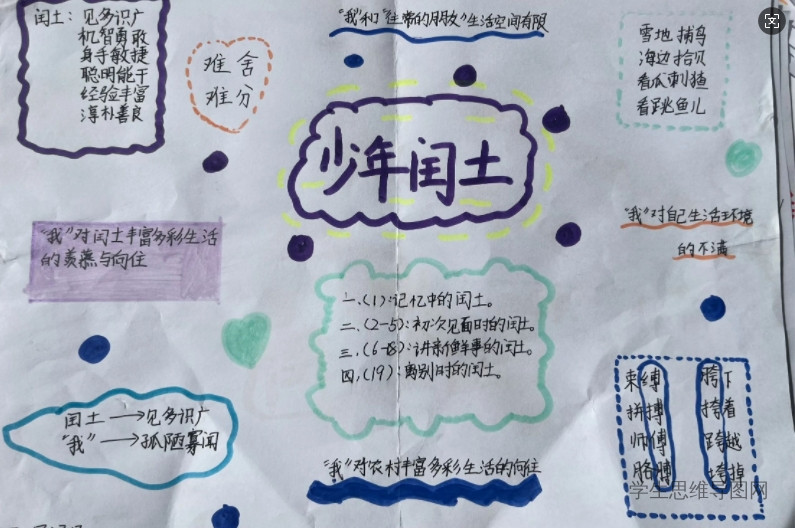 闰土：见多识广
机智勇敢
身手敏捷
聪明能干
经验丰富
淳朴善良
难舍
难分
"我"和"往常的朋友"生活空间有限
少年闰土
雪地捕鸟
海边拾贝
看瓜刺猹
看跳鱼儿
"我"对闰土丰富多彩生活
的羡慕与向往
"我"对自己生活环境
的不满
一、(1)：记忆中的闰土。
二、(2-5)：初次见面时的闰土。
三、(6-8)：讲新鲜事的闰土。
四、(19)：离别时的闰土。
闰土→见多识广
"我"→孤陋寡闻
"我"对农村丰富多彩生活的向往
束缚 胯下
拼搏 挎着
师傅 跨越
胳膊 垮掉
学生思维导图网